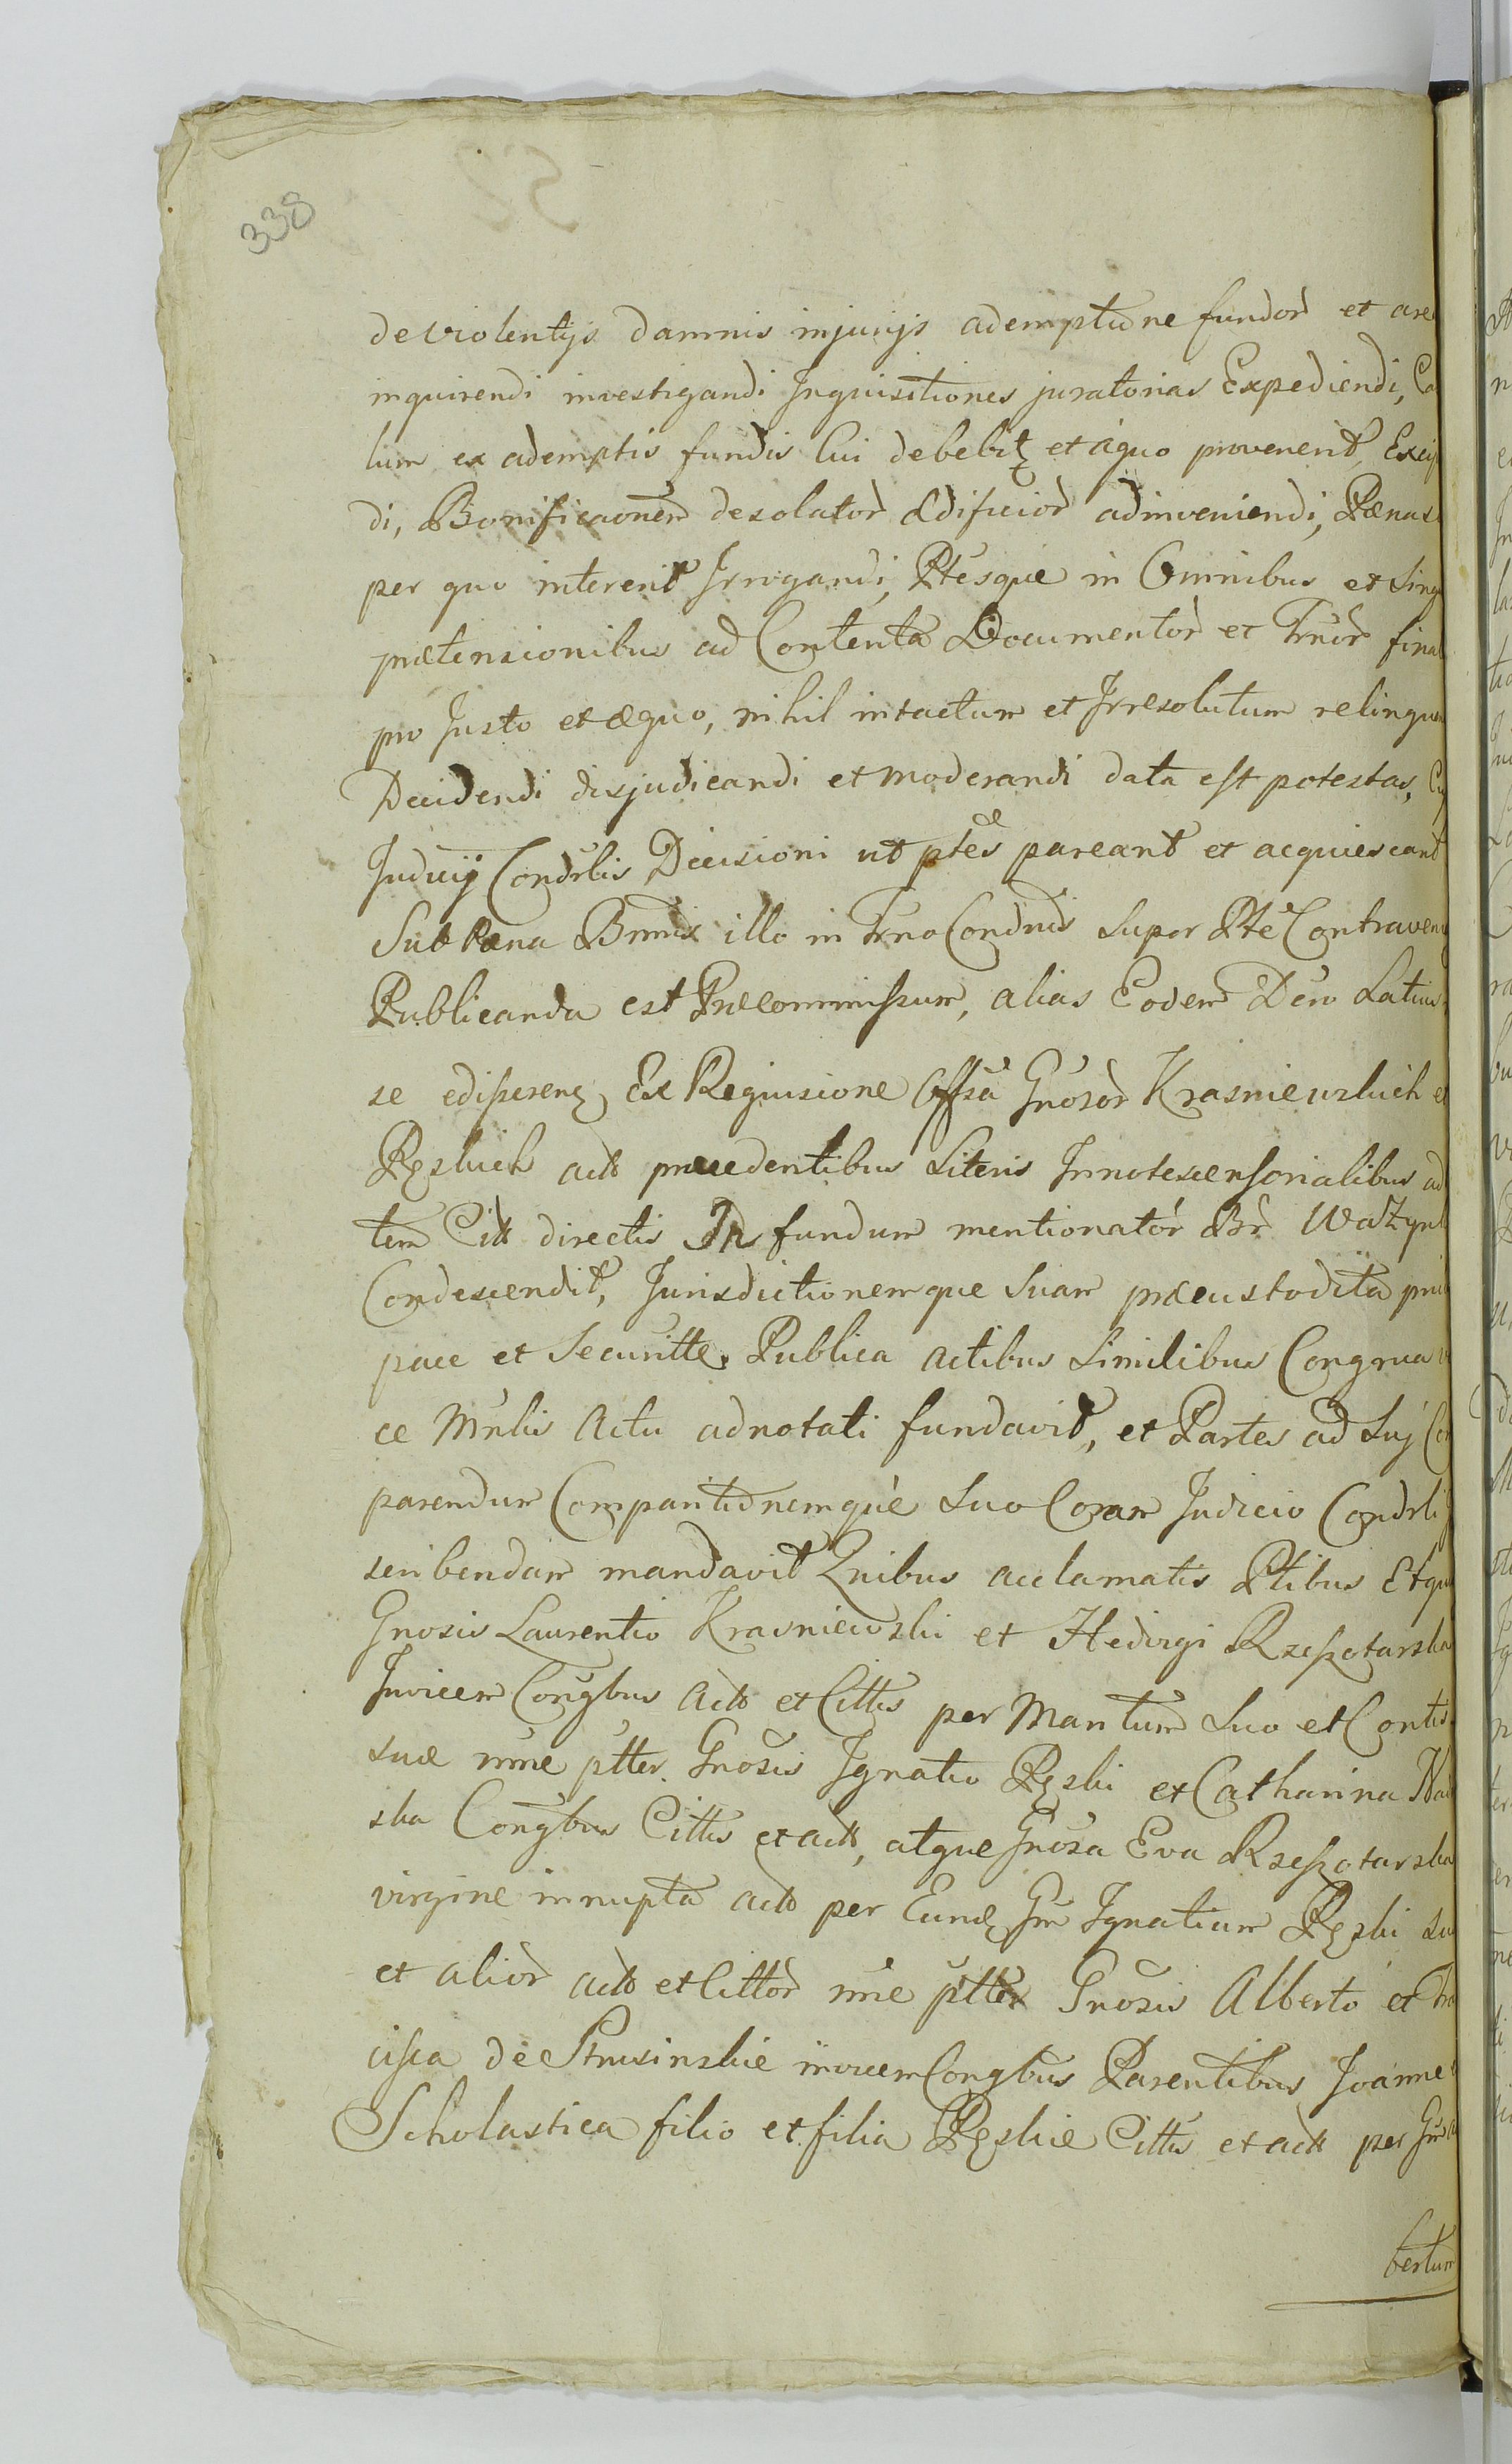 338
de violentijs damnis injurijs ademptione fundor et are
inquirendi investigandi Inquisitiones juratorias Expediendi, Ca
lum ex ademptis fundis Cui debebit et aquo provenerit, Excip
di, Bonificaonem desolator Ædificior adinveniendi, Pænas
per quo intererit Irrogandi, Ptesque in Omnibus et Sing
prætensionibus ad Contenta Documentor et Trnor final
pro Justo et æquo, nihil intactum et Irresolutum relinque
Decidendi disjudicandi et moderandi data est potestas, Cuj
Judicij Condrlis Decisioni ut ptes pareant et acquiescant
Sub Pæna Bnnis illo in Trno Condnis Super Pte Contraveni
Publicanda est Præcommissum, alias Eodem Dcro Latius
se edisseren, Ex Requisione Offsa Gnosor Krasniewskich et
Ręskich actt præcedentibus Literis Innotescensorialibus ad
tem Citt directis In fundum mentionator Br Ważyn
Condescendit, Jurisdictionemque Suam præcustodita pri
pace et Securitte Publica actibus Similibus Congrua
ce Mnlis Actu adnotati fundavit, et Partes ad Suj Com
parendum Comparitionemque Suo Coram Judicio Condrli
scribendam mandavit Quibus acclamatis Ptibus Etqu
Gnosis Laurentio Krasniewski et Hedvigi Rzeszotarska
Invicem Congbus Actt et Cittis per Maritum Suo et Contis
suæ nine ptter Gnosis Ignatio Ręski et Catharina
ska Congbus Cittis et actt, atque Gnosa Eva Rzeszotarska
virgine innupta actt per Eund Gm Ignatium Ręski Su
et alior actt et Cittor nine ptter Gnosis Alberto et Fran
cisca de Strusinskie invicem Congbus Parentibus Joanne
Scholastica filio et filia Ręskie Cittis et actt per Gm
bertum